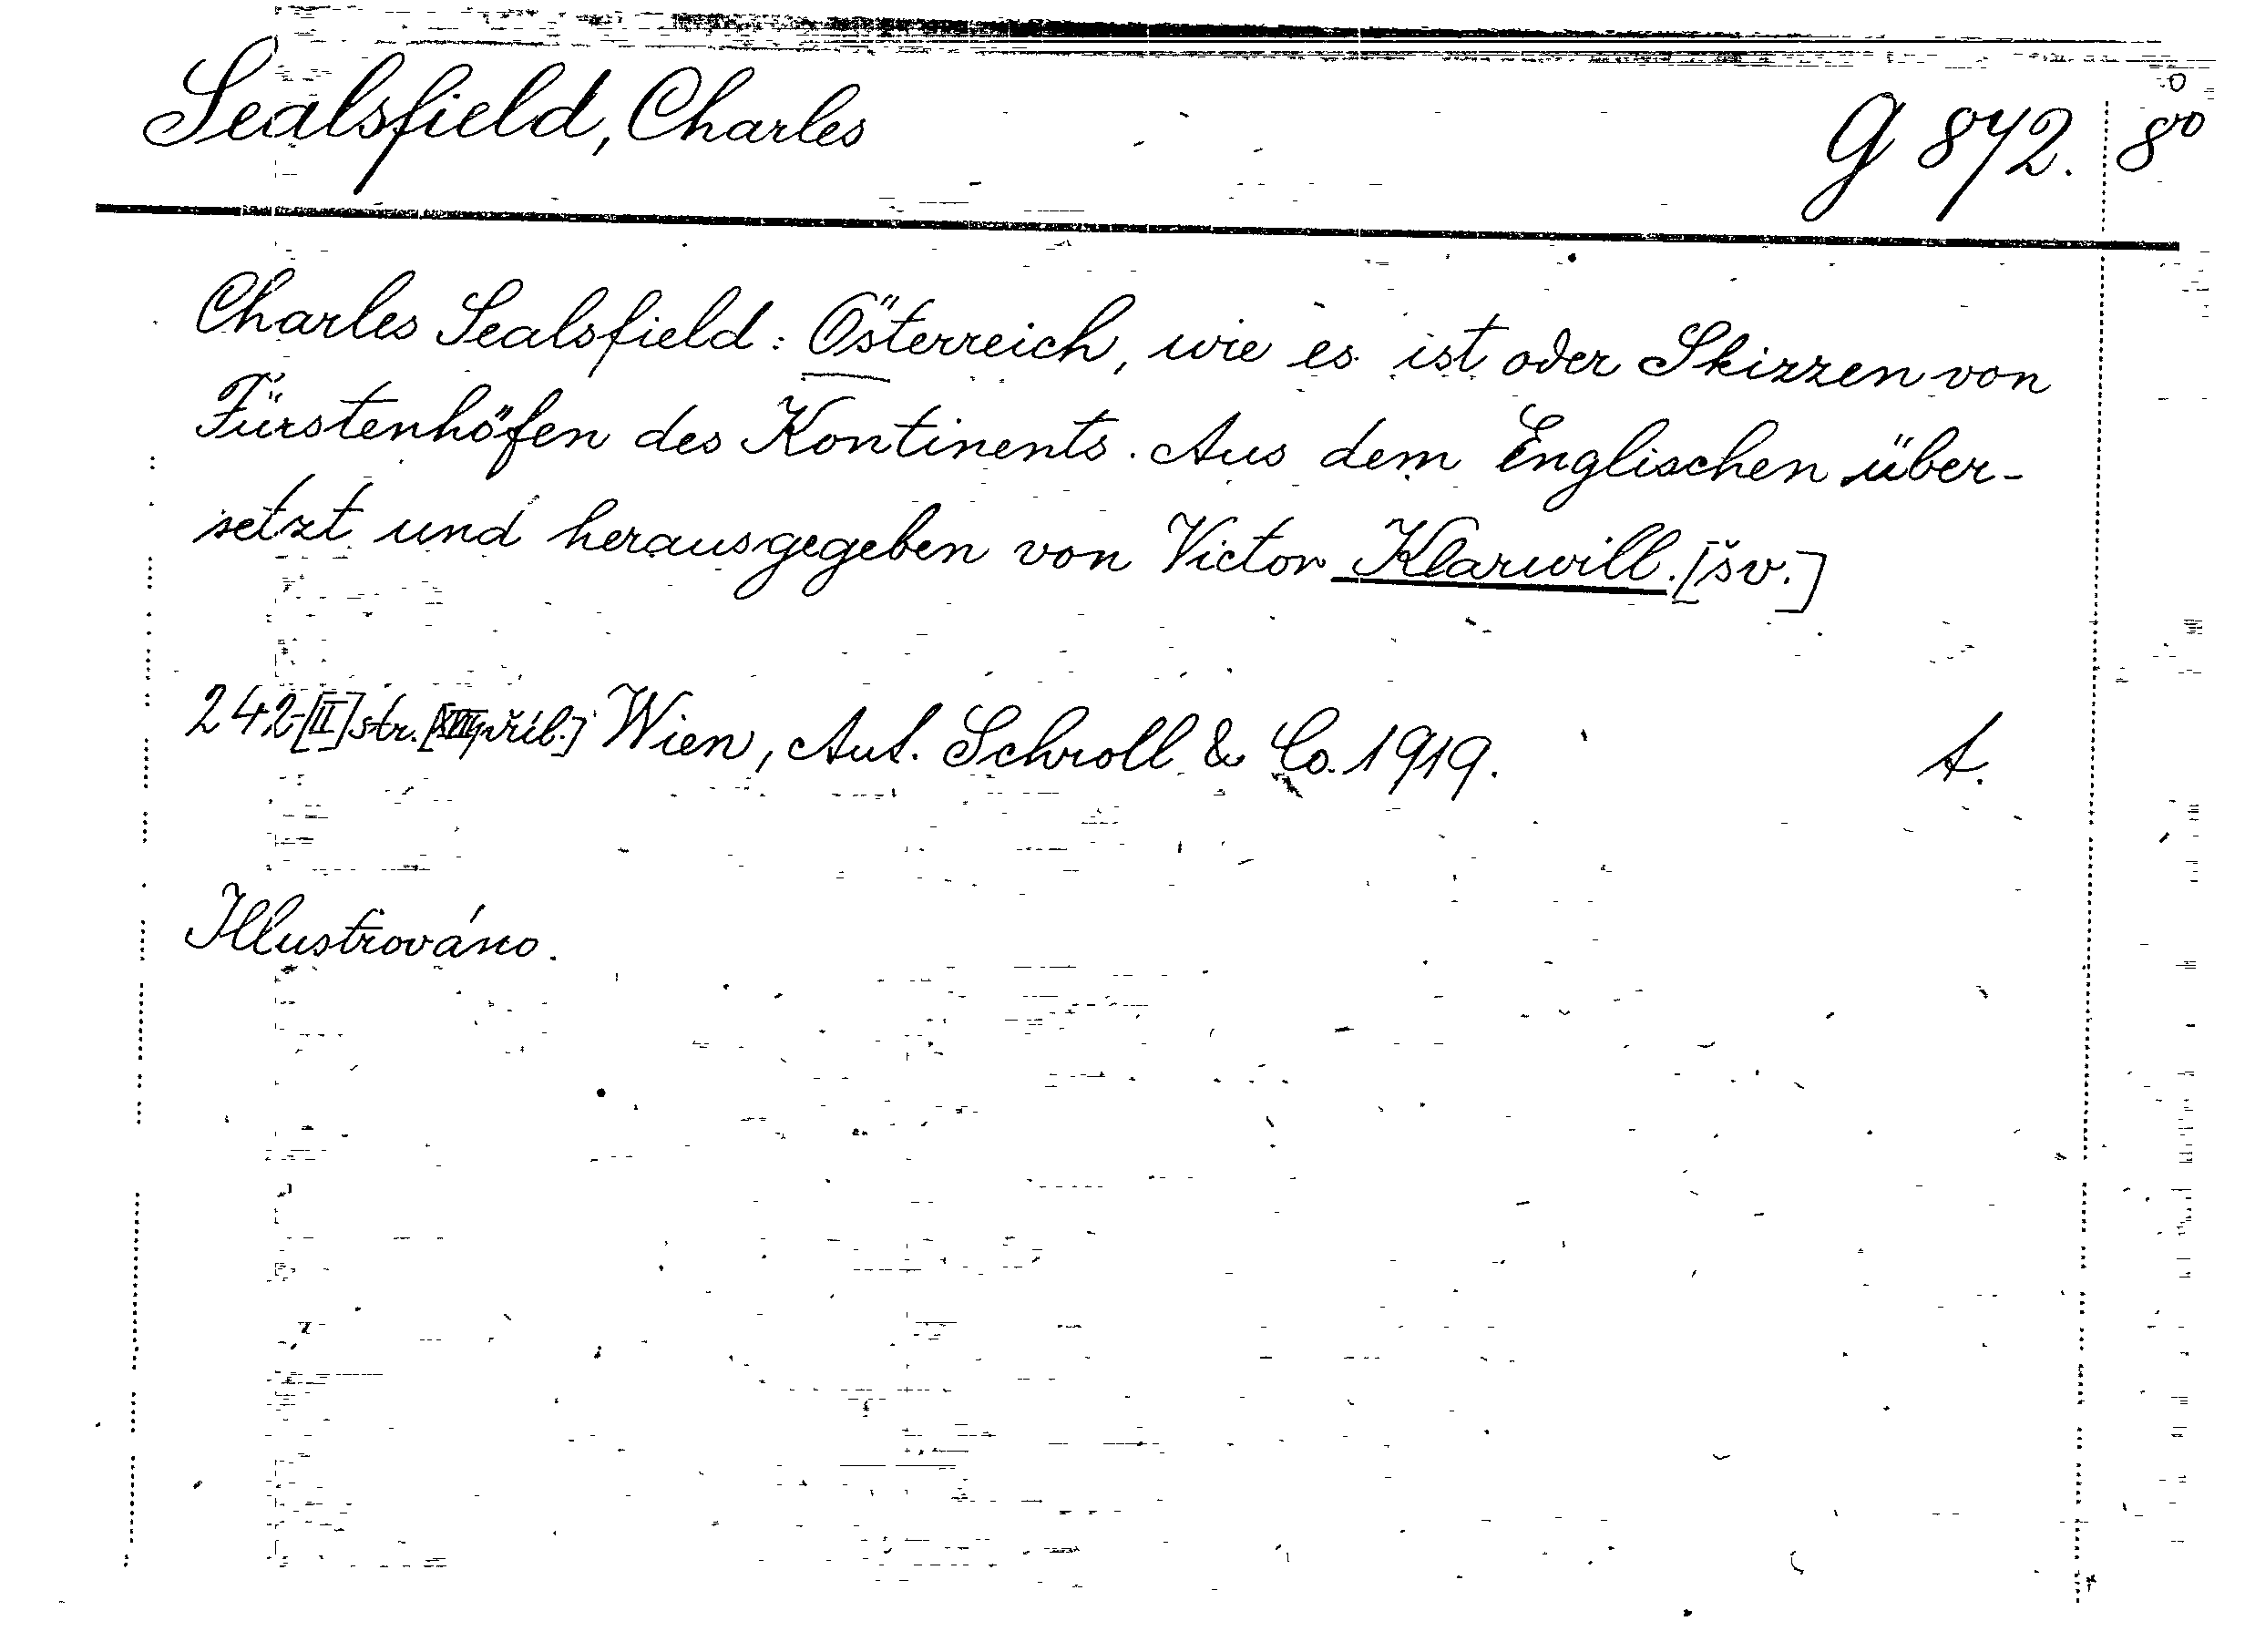 Sealsfield, Charles G 872. 8⁰
Charles Sealsfield: Österreich, wie es ist oder Skizzen von
Fürstenhöfen des Kontinents. Aus dem Englischen über-
setzt und herausgegeben von Victor Klarwill. [šv.]
242-[II] str. [XVII příl.] Wien, Ant. Schroll & Co. 1919. A.
Illustrováno.